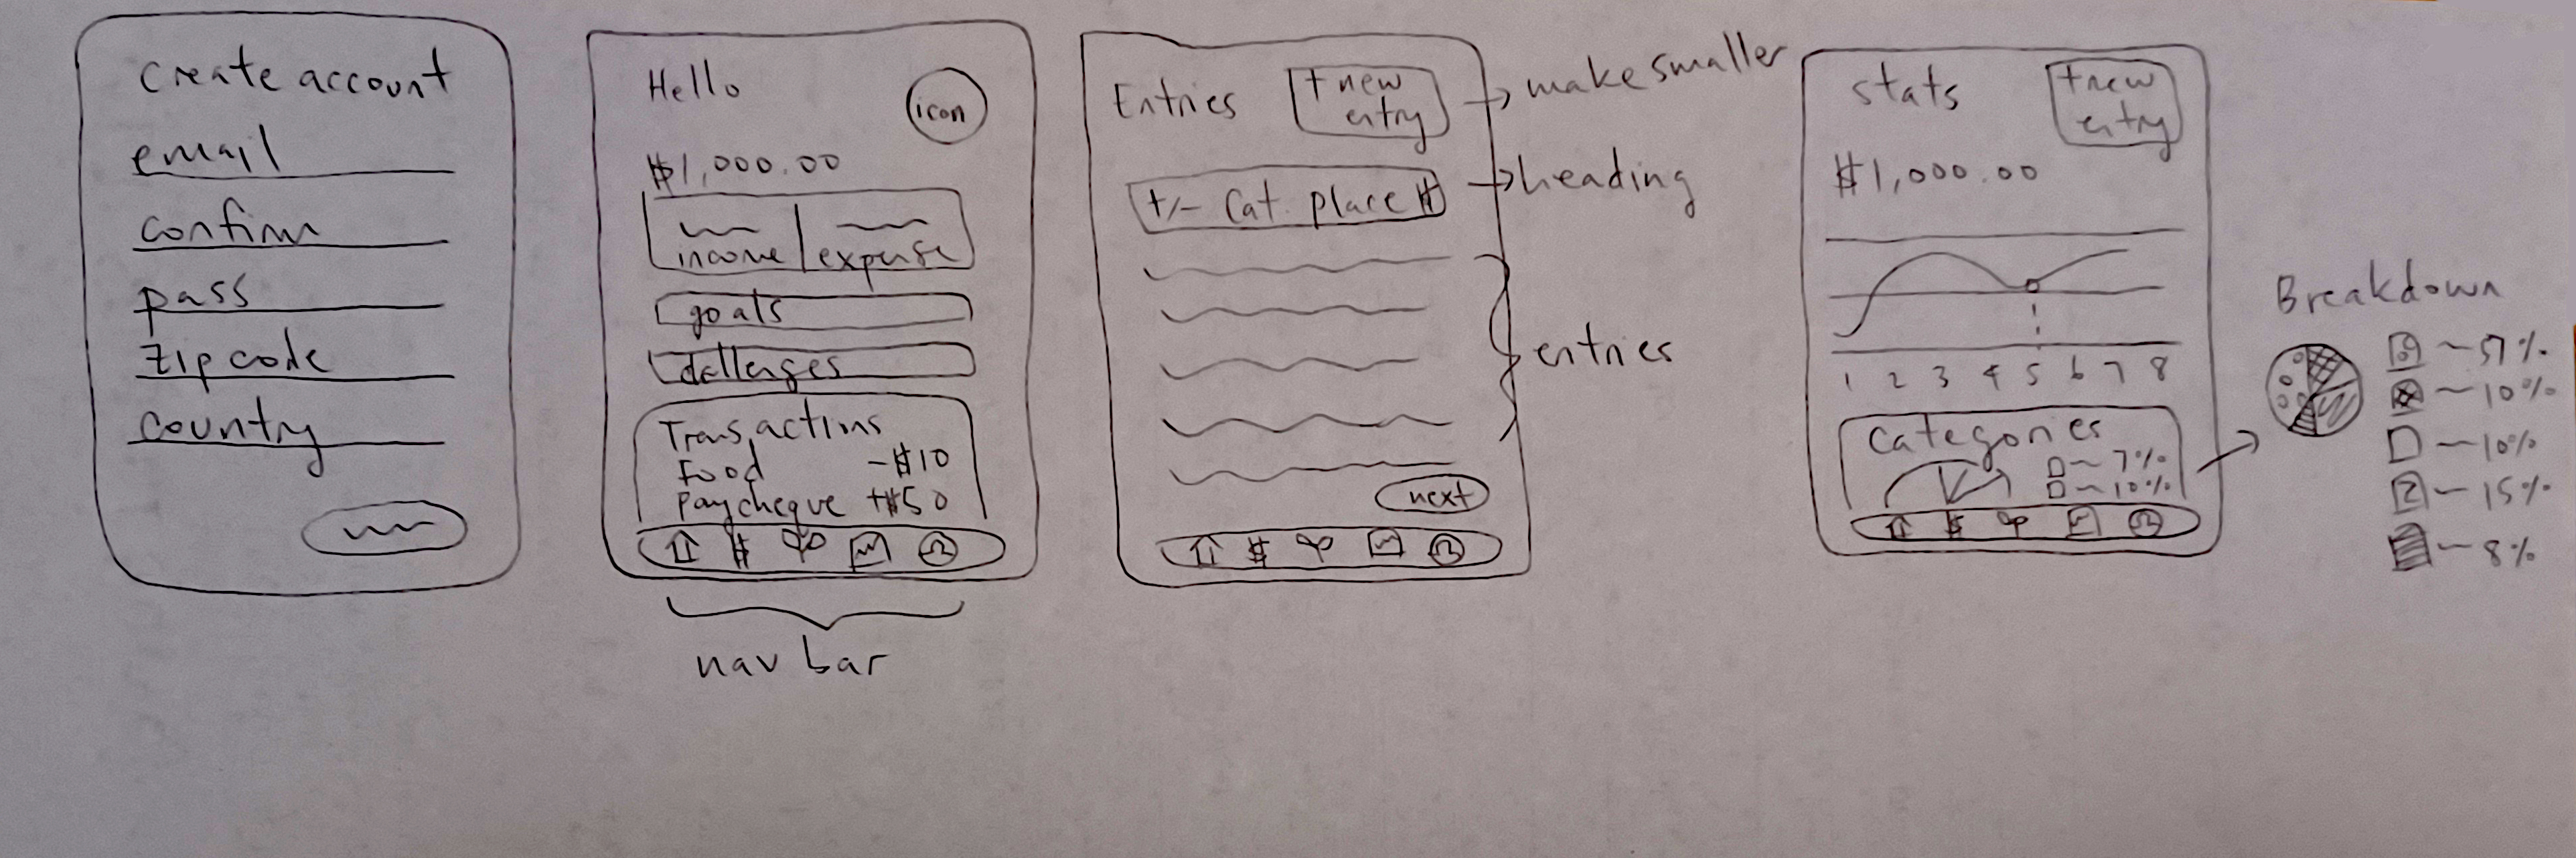 Create account
email
confirm
pass
zip code
country
Hello
icon
$1,000.00
income
expense
goals
challenges
Transactions
Food -$10
Paycheque +$50
$
nav bar
Entries
+ new
entry
→ make smaller
+/- Cat. place #
→ heading
entries
next
$
Stats
+ new
entry
$1,000.00
1 2 3 4 5 6 7 8
Categories
7%
10%
$
Breakdown
57%
10%
10%
15%
8%